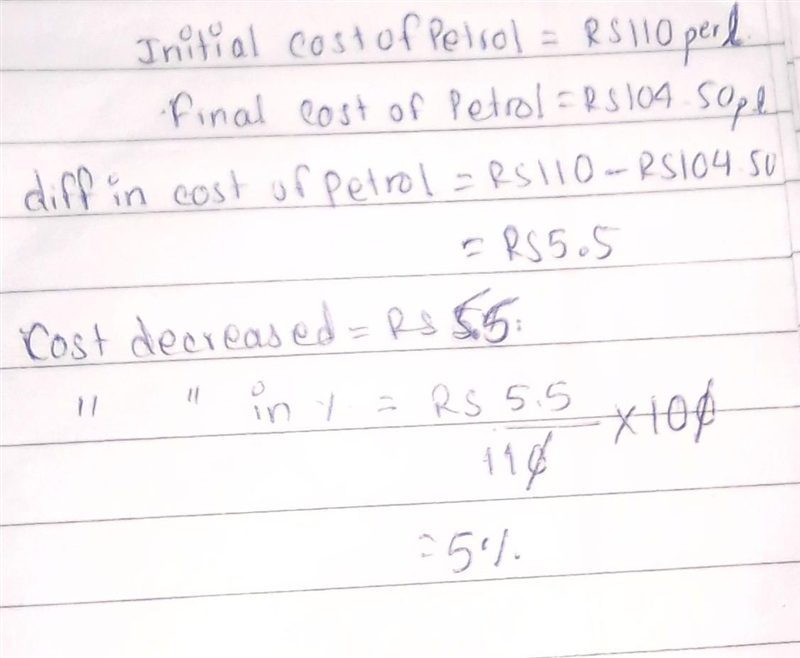 Initial cost of Petrol = RS110 per l.
final cost of Petrol = RS104.50 p l
diff in cost of petrol = RS110 - RS104.50
= RS5.5
Cost decreased = Rs 5.5
" " in % = RS 5.5 / 110 × 100
= 5%